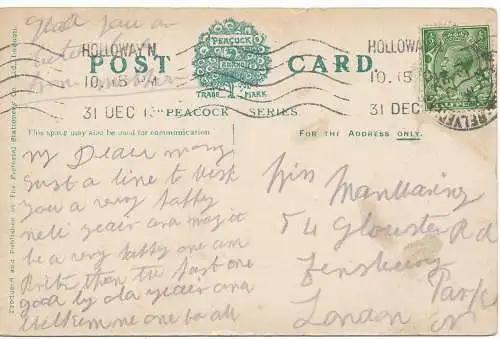 Glad you are
better
from mother
HOLLOWAY.N.
10.15
31 DEC
POST CARD
PEACOCK
BRAND
TRADE MARK
"PEACOCK" SERIES
HOLLOWAY
10.15
31 DEC
This space may also be used for communication
FOR THE ADDRESS ONLY.
Produced and Published by The Pictorial Stationery Co., Ltd., London.
My Dear Mary
Just a line to wish
you a very happy
year and may it
be a very happy one and
then the last one
good by old year and
one to all
Miss Manwaring
54 Gloucester Rd
Finsbury
Park
London
N